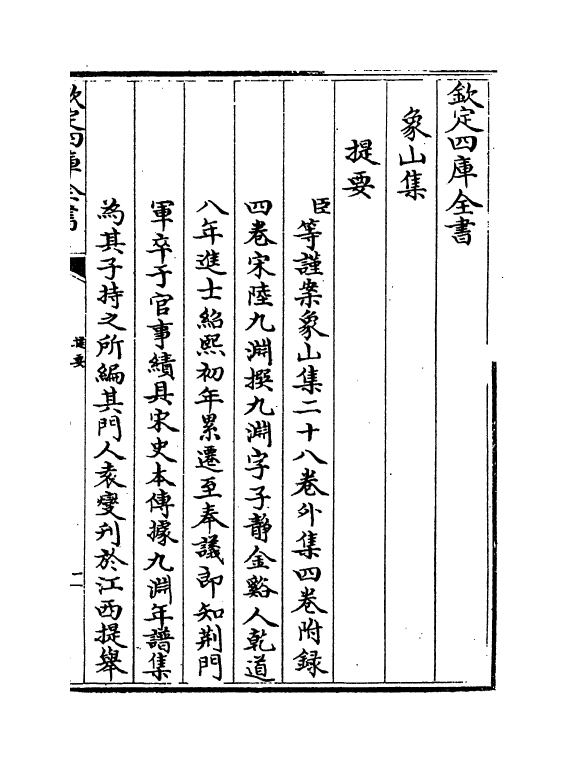 欽定四庫全書
象山集
提要
臣等謹案象山集二十八卷外集四卷附録
四卷宋陸九淵撰九淵字子靜金谿人乾道
八年進士紹熙初年累遷至奉議郎知荆門
軍卒于官事績具宋史本傳據九淵年譜集
為其子持之所編其門人袁燮刋於江西提舉
欽定四庫全書
提要
二